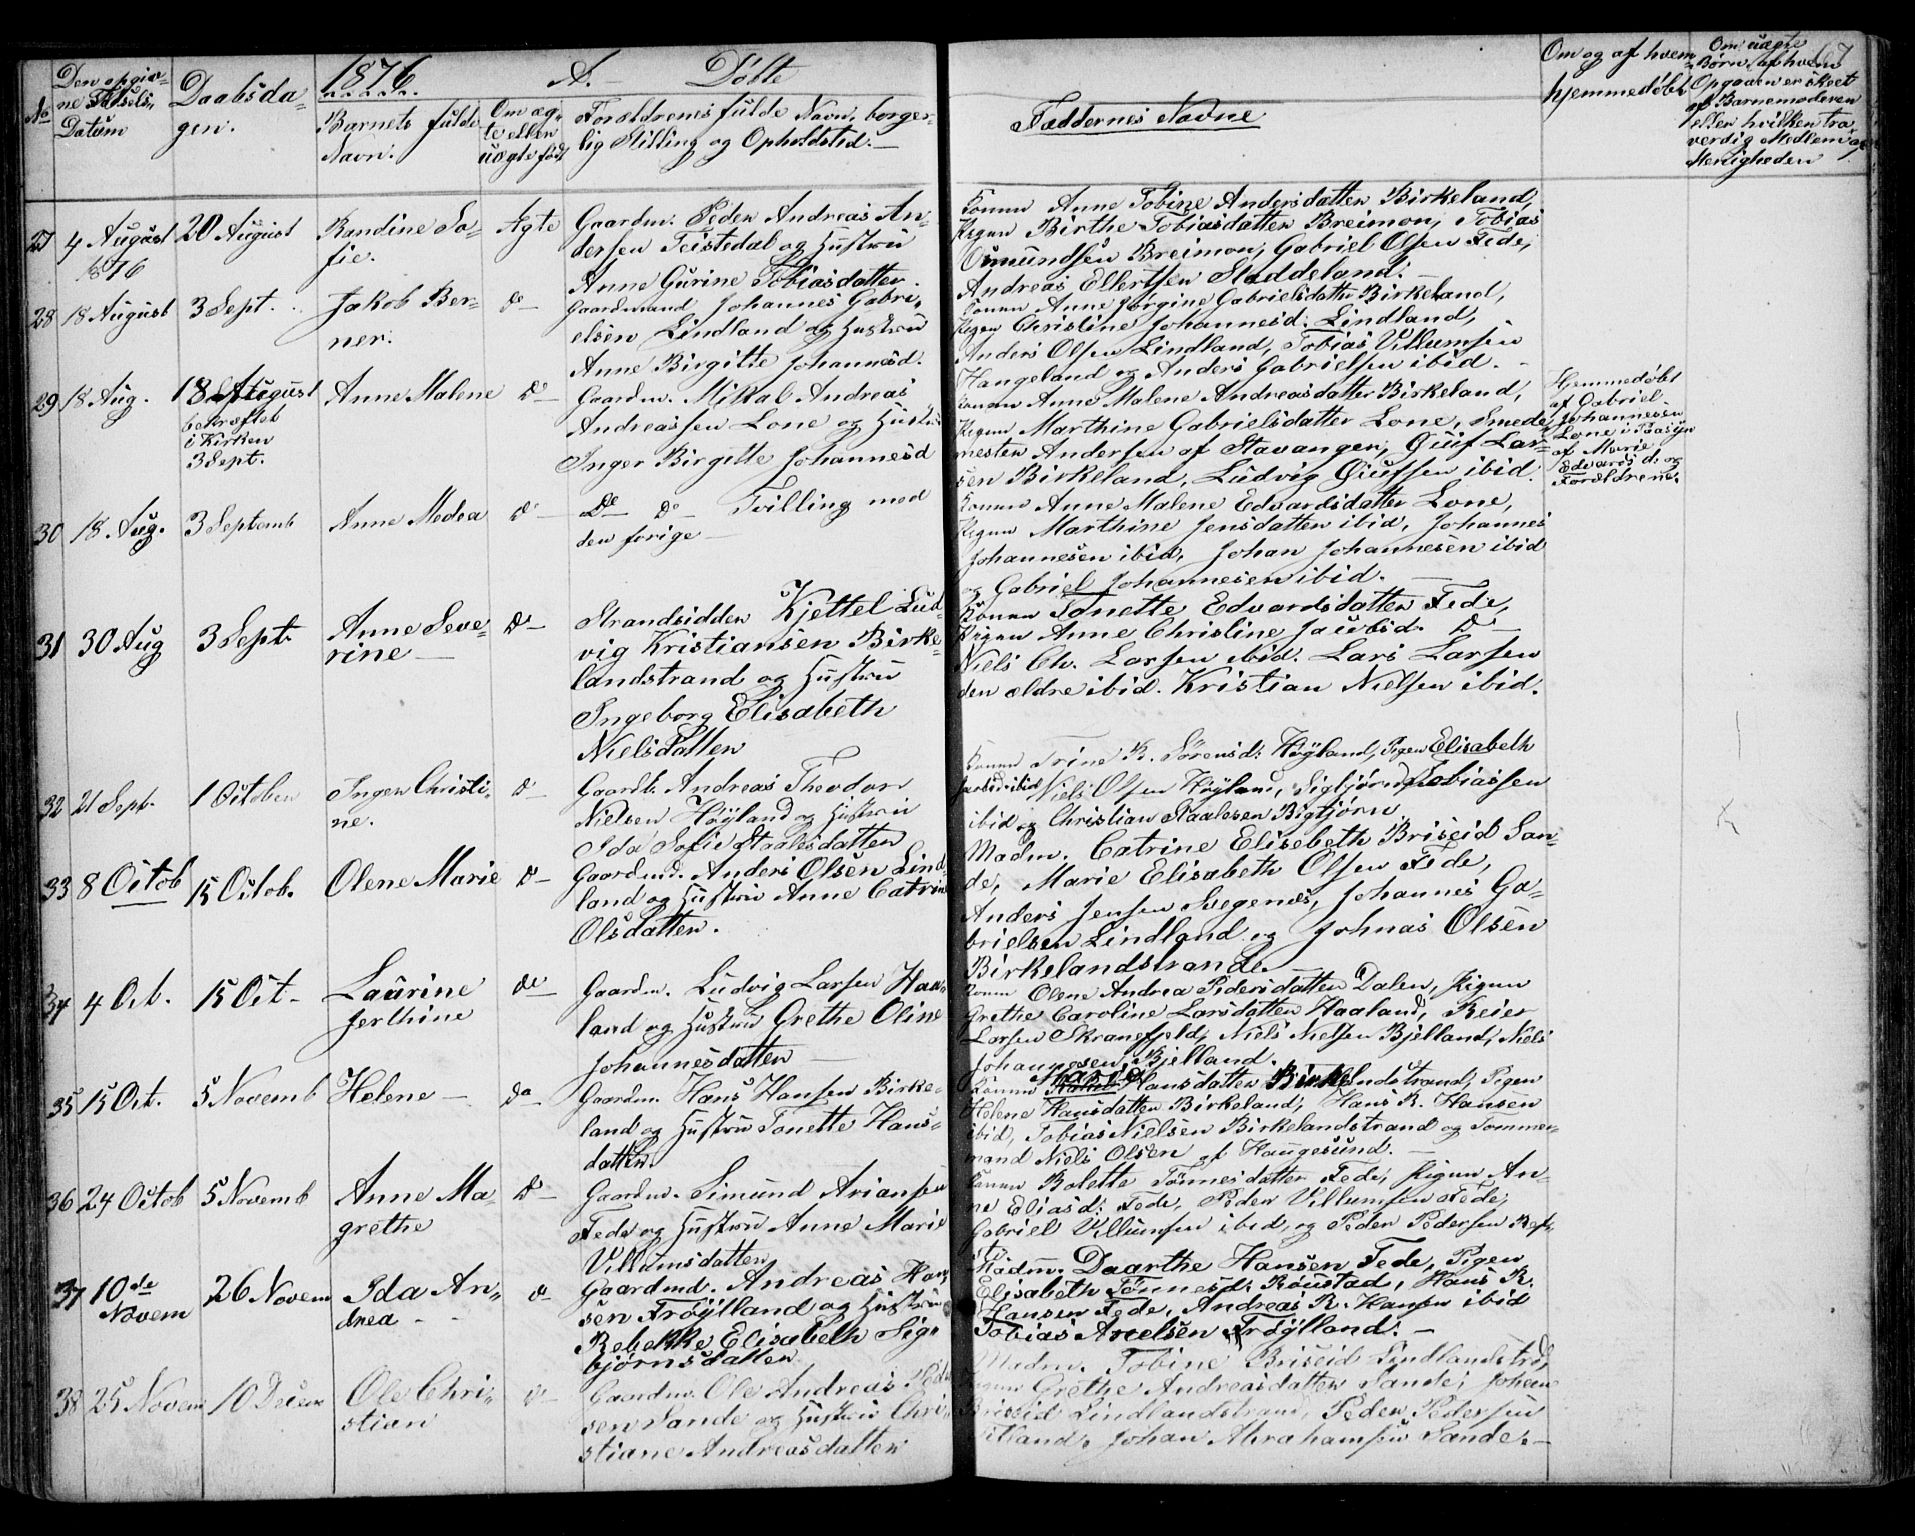 1876 A. Döbte 67
No
Den opgiv-
ne Födsels-
Datum
Daabsda-
gen.
Barnets fulde
Navn.
Om æg-
te eller
uægte født
Forældrenes fulde Navn, borger-
lig Stilling og Opholdsted.
Faddernes Navne
Om og af hvem
hjemmedøbt
Om uægte
Børn, af hvem
Opgaven er skeet
af Barnemoderen
eller hvilken tro-
værdig Medlem af
Menigheden
27 4 August
1876
20 August
Randine So-
fie.
Ægte
Gaardm. Peder Andreas An-
dersen Feistdal og Hustru
Anne Gurine Tobiasdatter.
Konen Anne Tobine Andersdatter Birkeland,
Pigen Birthe Tobiasdatter Breimon, Tobias
Osmundsen Breimon, Gabriel Olsen Fede,
Andreas Ellertsen Staddeland.
28 18 August
3 Sept.
Jakob Ber-
ner.
do
Gaardmand Johannes Gabri-
elsen Lindland og Hustru
Anne Birgitte Johannesd.
Konen Anne Jørgine Gabrielsdatter Birkeland,
Pigen Christine Johannesd: Lindland,
Anders Olsen Lindland, Tobias Villumsen
Haugeland og Anders Gabrielsen ibid.
29 18 Aug.
18 August
bekræftet
i Kirken
3 Sept.
Anne Malene
do
Gaardm. Mikal Andreas
Andreassen Lone og Hustru
Inger Birgitte Johannesd
Konen Anne Malene Andreasdatter Birkeland,
Pigen Marthine Gabrielsdatter Lone, Smede-
mesten Andersen af Stavanger, Guuf Lar-
sen Birkeland, Ludvig Guufsen ibid.
Hjemmedøbt
af Gabriel
Johannesen
Lone i Paasyn
af Marie
Edvards d. og
Forældrene.
30 18 Aug.
3 Septemb
Anne Medea
do
Do do Tvilling med
den forige
Konen Anne Malene Edvardsdatter Lone,
Pigen Marthine Jensdatter ibid, Johannes
Johannesen ibid, Johan Johannesen ibid
og Gabriel Johannesen ibid.
31 30 Aug
3 Sept.
Anne Seve-
rine
do
Strandsidder Kjettel Lud-
vig Kristiansen Birke-
landstrand og Hustru
Ingeborg Elisabeth
Nielsdatter
Konen Tonette Edvardsdatter Fede,
Pigen Anne Christine Jacobsd. do
Niels Ch. Larsen ibid. Lars Larsen
den ældre ibid. Kristian Nielsen ibid.
32 21 Sept.
1 October
Inger Christi-
ne.
do
Gaardb. Andreas Theodor
Nielsen Høyland og Hustru
Ida Sofie Staalesdatter
Konen Trine K. Sørensd: Høyland, Pigen Elisabeth
ibid Niels Olsen Høyland, Sigbjørn Tobiassen
ibid og Christian Staalesen Bigtjørn
33 8 Octob
15 Octob.
Olene Marie
do
Gaardmd. Anders Olsen Lind-
land og Hustru Anne Catrine
Olsdatter.
Madm. Catrine Elisebeth Briseid San-
de, Marie Elisabeth Olsen Fede,
Anders Jensen Svegenes, Johannes Ga-
brielsen Lindland og Johnas Olsen
Birkelandstrande.
34 4 Oct.
15 Oct
Laurine
Jerthine
do
Gaardm. Ludvig Larsen Haa-
land og Hustru Grethe Oline
Johannesdatter
Konen Olene Andrea Pedersdatter Dalen, Pigen
Grethe Caroline Larsdatter Haaland, Reier
Larsen Skranefjeld, Niels Nielsen Bjelland, Niels
Johannesen Bjelland.
35 15 Oct.
5 Novemb
Helene
do
Gaardm. Hans Hansen Birke-
land og Hustru Tonette Hans-
datter.
Konen Maria Hansdatter Birkelandstrand, Pigen
Helene Hansdatter Birkeland, Hans R. Hansen
ibid, Tobias Nielsen Birkelandstrand og Tømmer-
mand Niels Olsen af Haugesund.
36 24 Octob
5 Novemb
Anne Ma-
grethe
do
Gaardm. Simund Ariansen
Fede og Hustru Anne Marie
Villumsdatter
Konen Bolette Tønnesdatter Fede, Pigen An-
ne Eliasd: Fede, Peder Villumsen Fede,
Gabriel Villumsen ibid, og Peder Pedersen Ref-
sti.
37 10de
Novem
26 Novem
Ida An-
drea
do
Gaardmd. Andreas Han-
sen Frøylland og Hustru
Rebekke Elisabeth Sig-
bjørnsdatter
Madm. Daarthe Hansen Fede, Pigen
Elisabeth Tønnesd: Roustad, Hans R.
Hansen Fede, Andreas R. Hansen ibid
Tobias Axelsen Frøylland.
38 25 Novem
10 Decem
Ole Chri-
stian
do
Gaardm. Ole Andreas Peder-
sen Sande og Hustru Chri-
stiane Andreasdatter
Madm. Tobine Briseid Lindlandstrd,
Pigen Grethe Andreasdatter Sande, Johan
Briseid Lindlandstrand, Peder Pedersen
Johan Abrahamsen Sande.